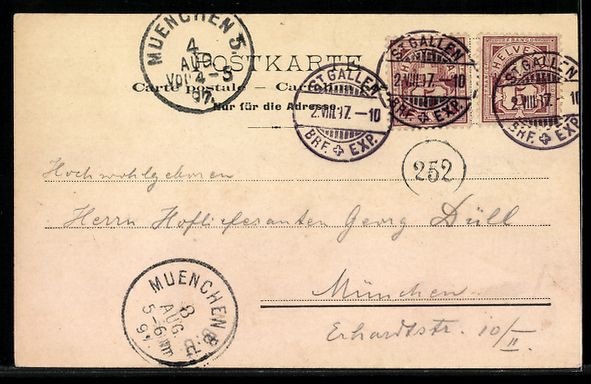 MUENCHEN 5.
4
AUG
Vor 4-5
97.
POSTKARTE
Carte postale — Cartolina
Nur für die Adresse.
ST. GALLEN
2.VIII.97.–10
BRF. EXP.
ST. GALLEN
2.VIII.97.–10
BRF. EXP.
HELVETIA
FRANCO
ST. GALLEN
2.VIII.97.–10
BRF. EXP.
252
Hochwohlgeboren
Herrn Hoflieferanten Georg Düll
München
Erhardtstr. 10/II
MUENCHEN
8
AUG
5-6